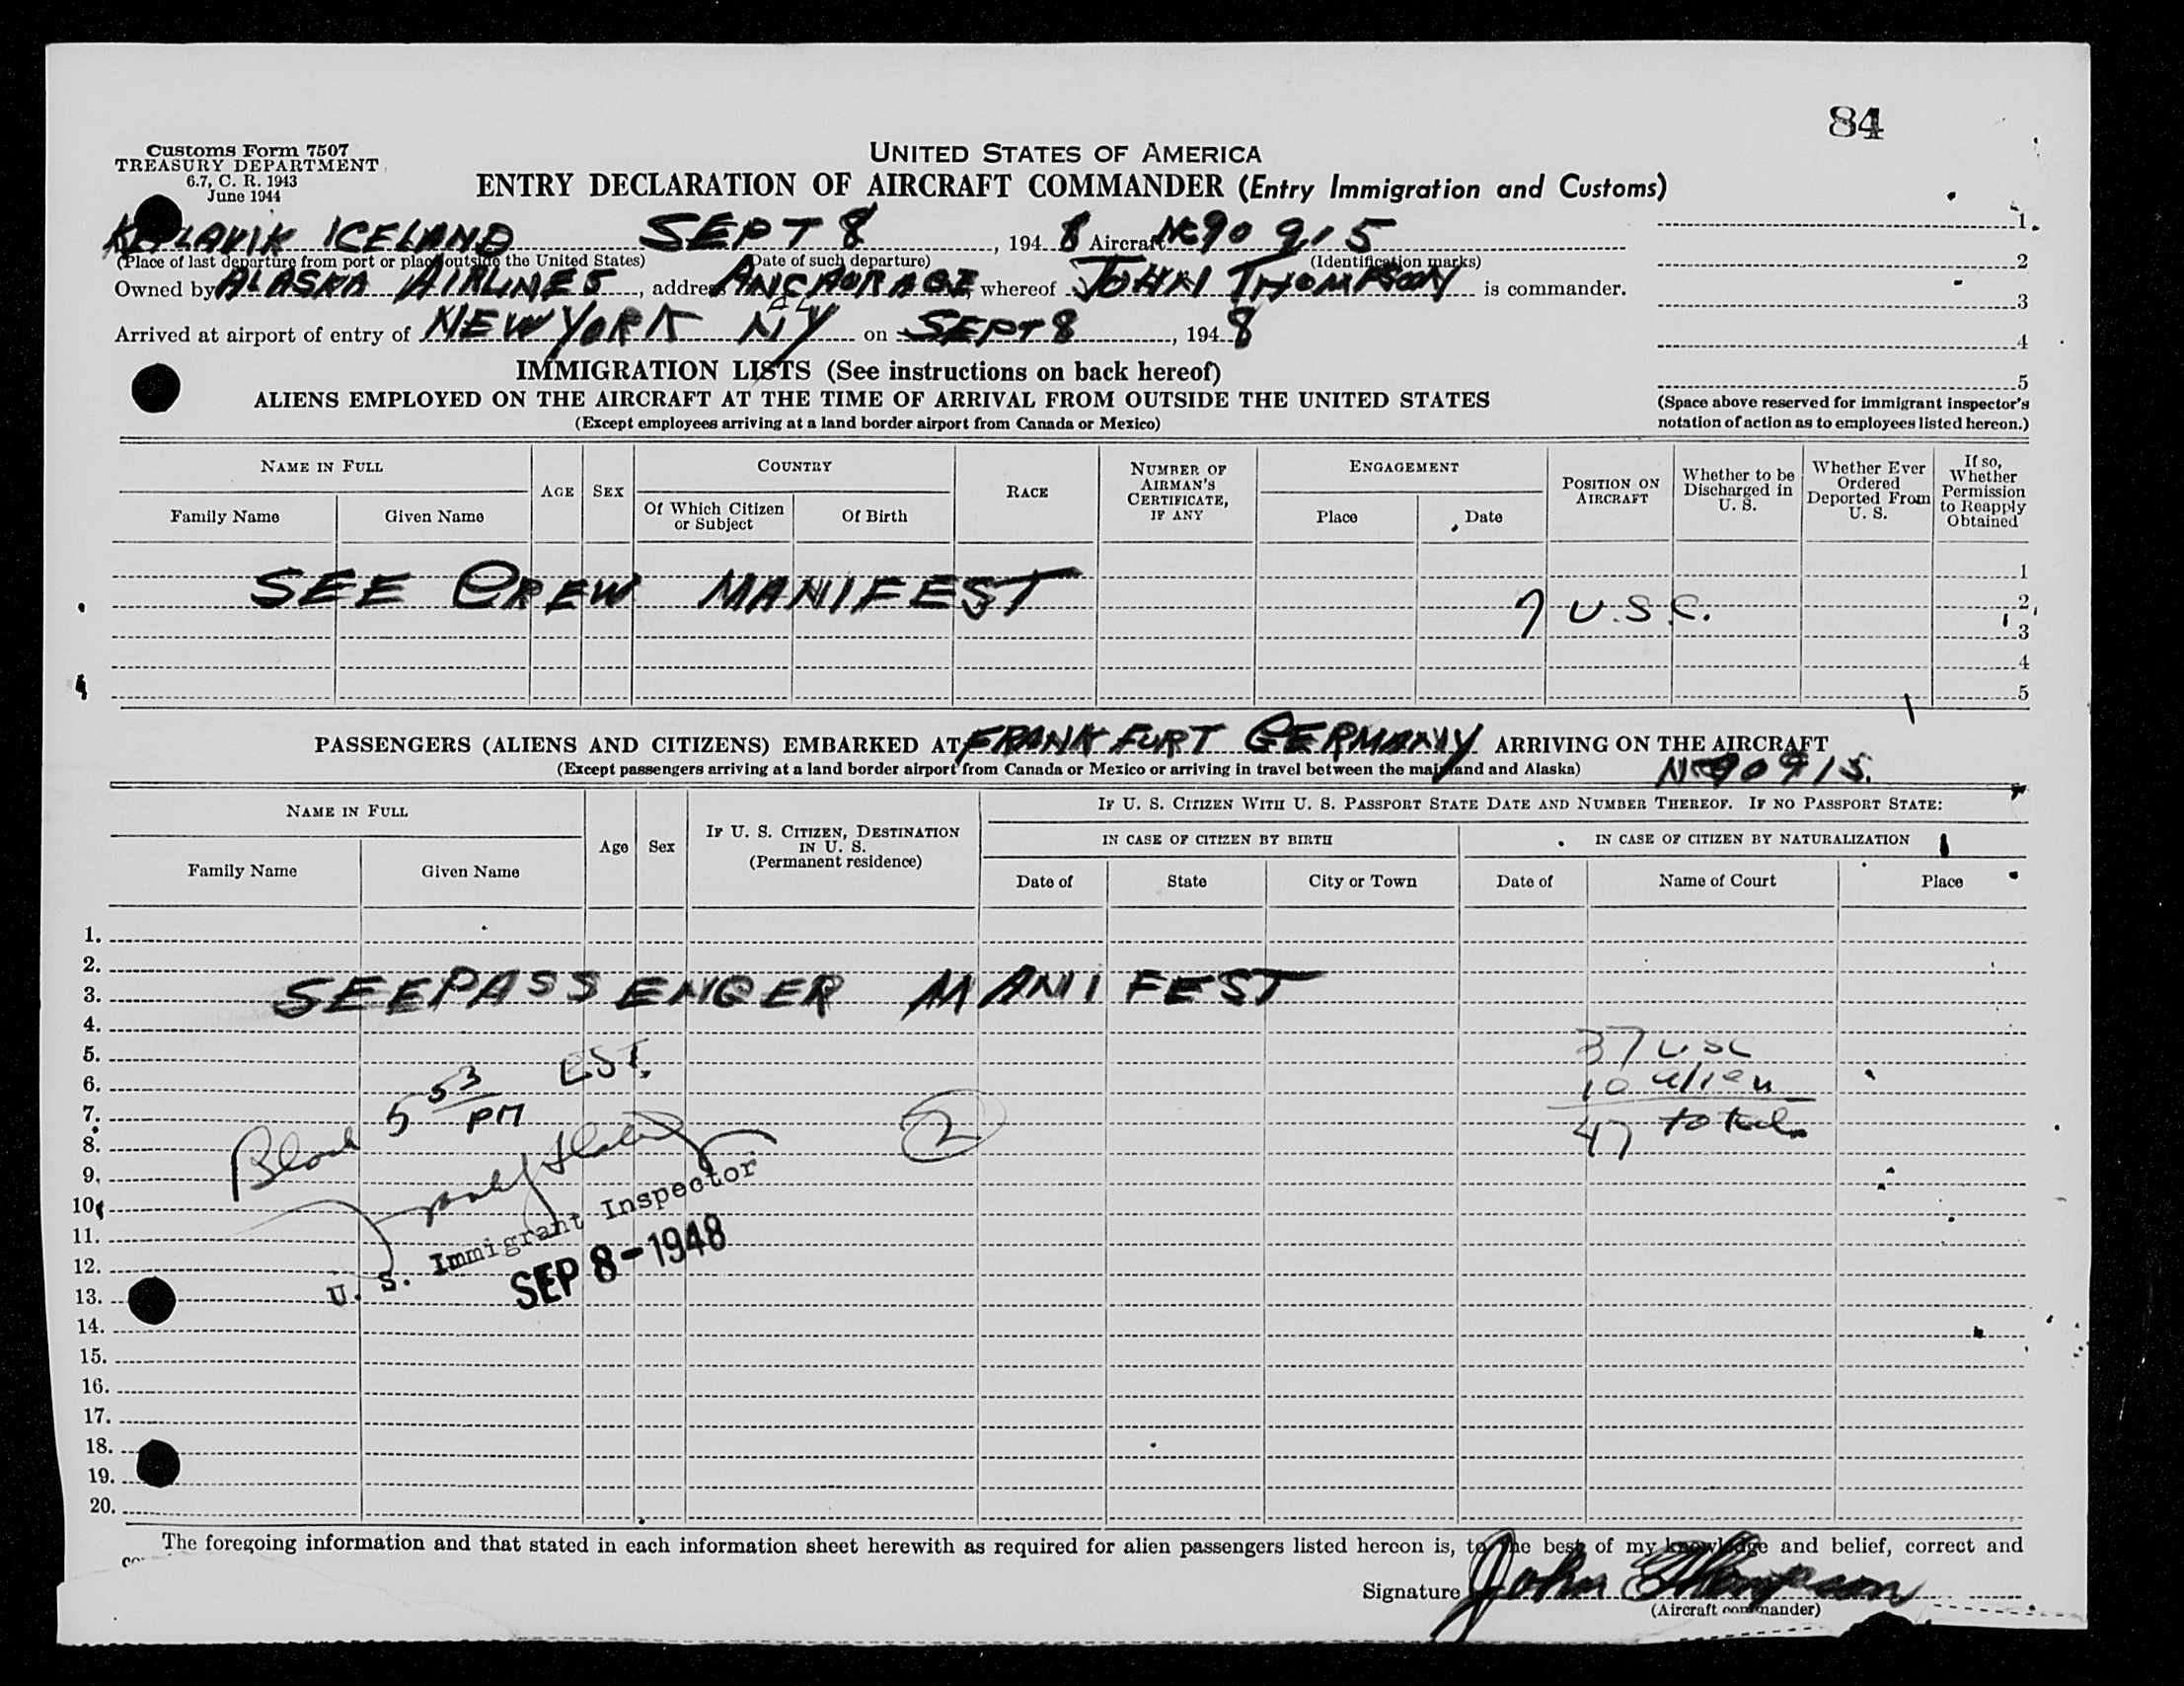 84
Customs Form 7507
TREASURY DEPARTMENT
6.7, C. R. 1943
June 1944
UNITED STATES OF AMERICA
ENTRY DECLARATION OF AIRCRAFT COMMANDER (Entry Immigration and Customs)
KEFLAVIK ICELAND SEPT 8, 194 8 Aircraft NC90915
(Place of last departure from port or place outside the United States) (Date of such departure) (Identification marks)
Owned by ALASKA AIRLINES, address ANCHORAGE whereof JOHN THOMPSON is commander.
Arrived at airport of entry of NEW YORK NY on SEPT 8, 194 8
1
2
3
4
5
(Space above reserved for immigrant inspector's
notation of action as to employees listed hereon.)
IMMIGRATION LISTS (See instructions on back hereof)
ALIENS EMPLOYED ON THE AIRCRAFT AT THE TIME OF ARRIVAL FROM OUTSIDE THE UNITED STATES
(Except employees arriving at a land border airport from Canada or Mexico)
NAME IN FULL
Family Name Given Name
AGE SEX
COUNTRY
Of Which Citizen or Subject Of Birth
RACE
NUMBER OF AIRMAN'S CERTIFICATE, IF ANY
ENGAGEMENT
Place Date
POSITION ON AIRCRAFT
Whether to be Discharged in U. S.
Whether Ever Ordered Deported From U. S.
If so, Whether Permission to Reapply Obtained
1
SEE CREW MANIFEST 7 U.S.C. 2
3
4
5
PASSENGERS (ALIENS AND CITIZENS) EMBARKED AT FRANKFURT GERMANY ARRIVING ON THE AIRCRAFT
(Except passengers arriving at a land border airport from Canada or Mexico or arriving in travel between the mainland and Alaska) NC90915.
NAME IN FULL
Family Name Given Name
Age Sex
IF U. S. CITIZEN, DESTINATION IN U. S.
(Permanent residence)
IF U. S. CITIZEN WITH U. S. PASSPORT STATE DATE AND NUMBER THEREOF. IF NO PASSPORT STATE:
IN CASE OF CITIZEN BY BIRTH IN CASE OF CITIZEN BY NATURALIZATION
Date of State City or Town Date of Name of Court Place
1.
2.
3. SEE PASSENGER MANIFEST
4.
5. EST. 37 USC
6. 5 53 PM 10 alien
7. 2 47 total
8.
9.
10.
11. U. S. Immigrant Inspector
12. SEP 8-1948
13.
14.
15.
16.
17.
18.
19.
20.
The foregoing information and that stated in each information sheet herewith as required for alien passengers listed hereon is, to the best of my knowledge and belief, correct and
Signature John Thompson
(Aircraft commander)